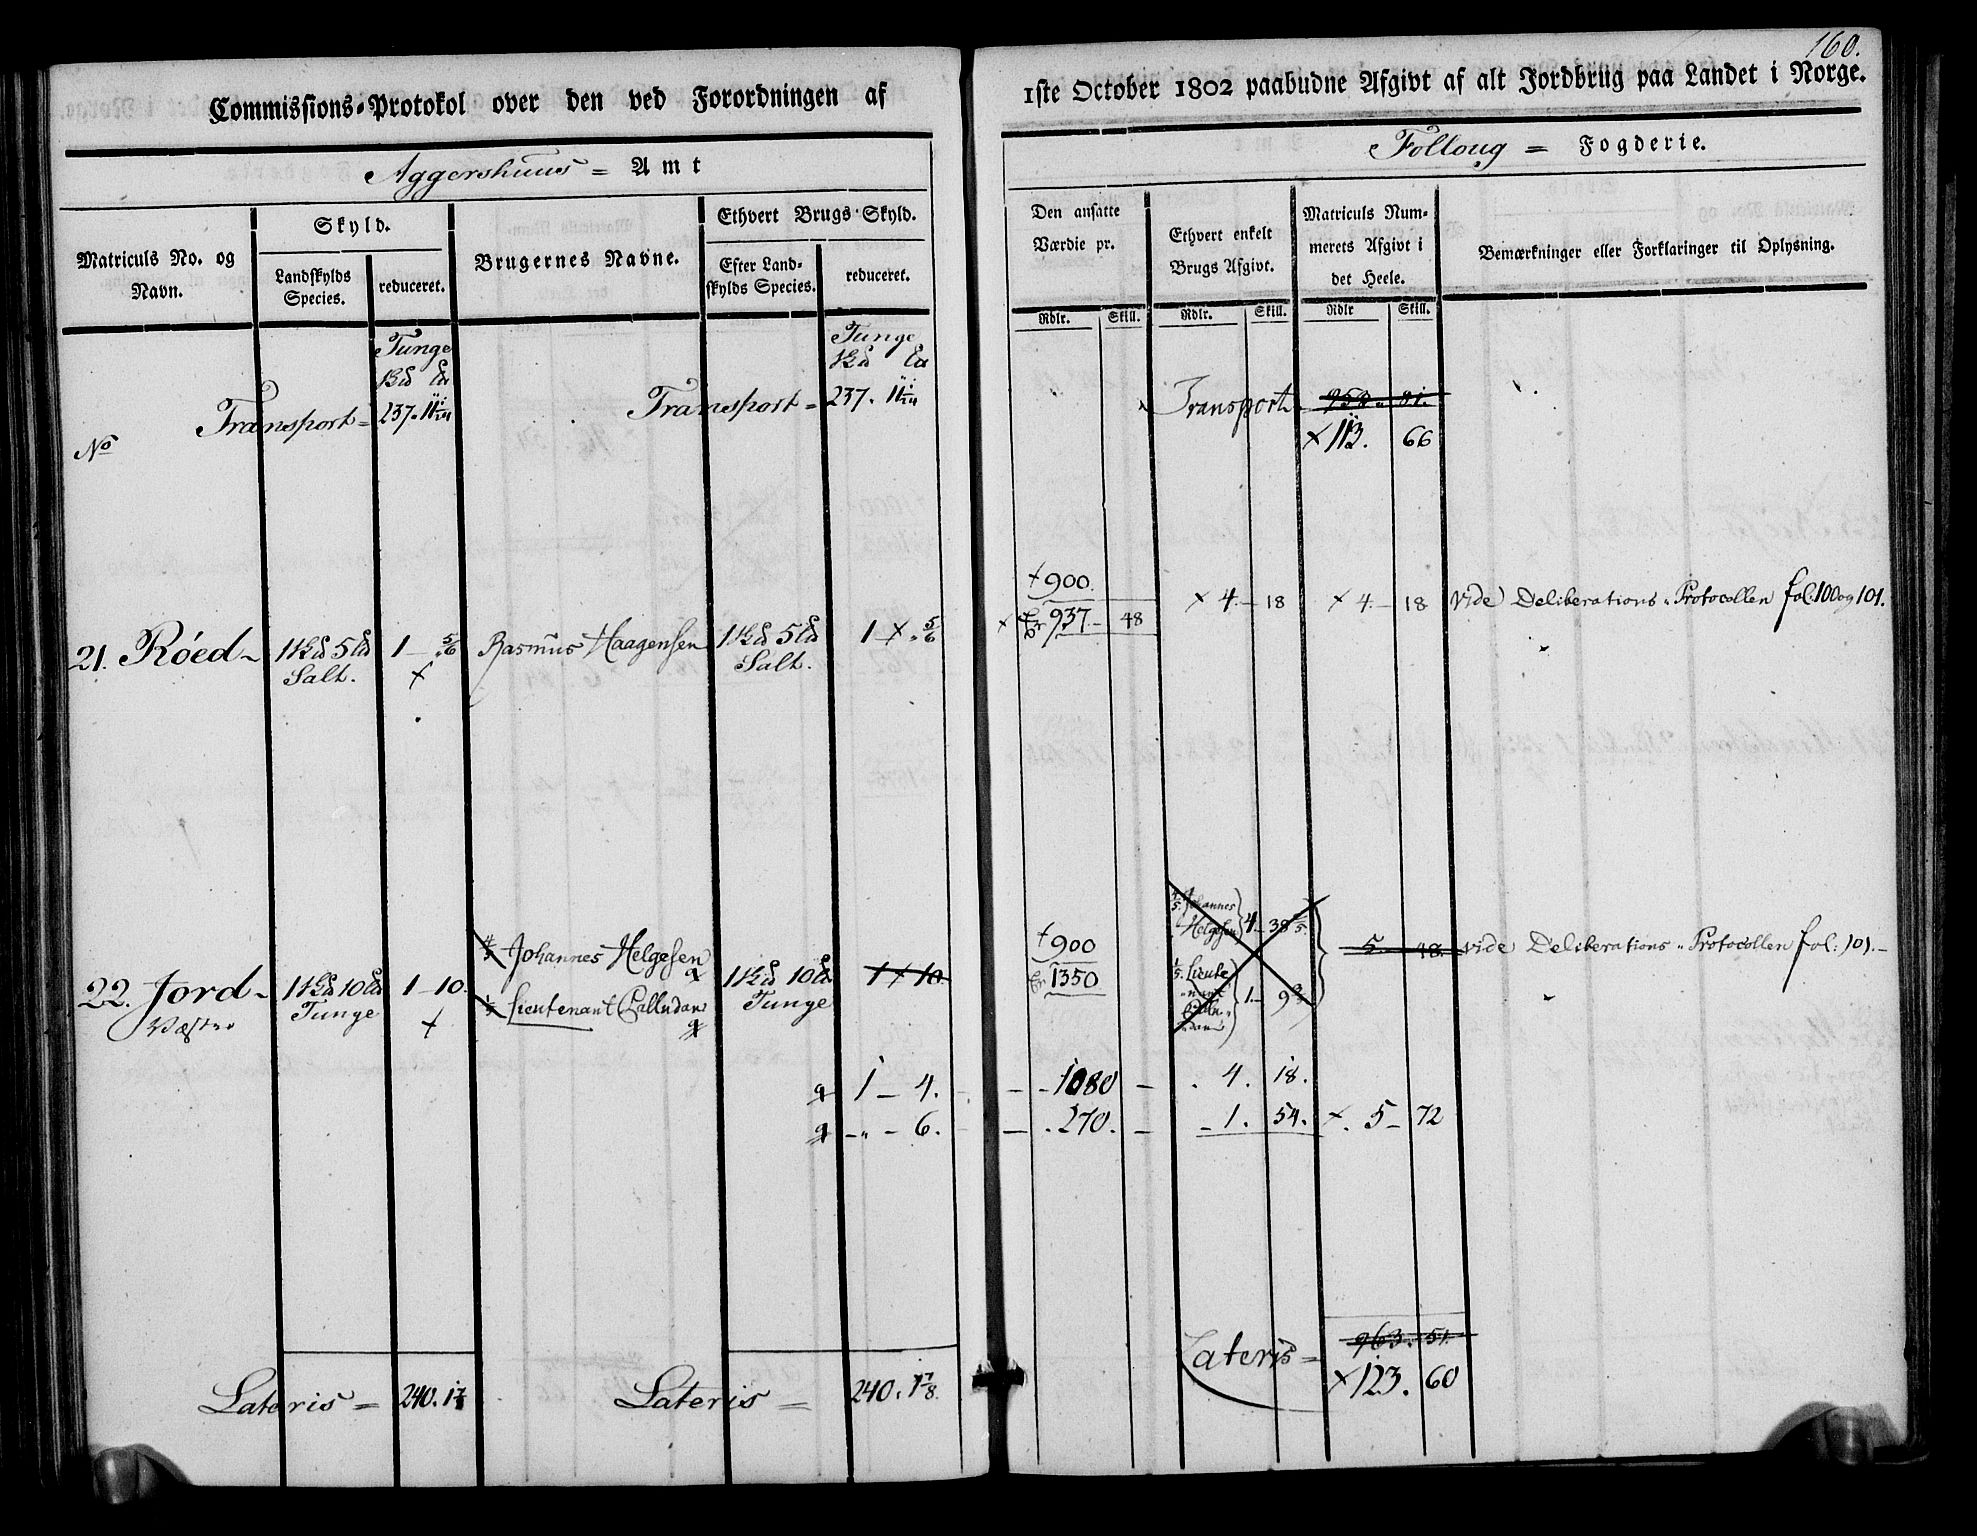 160.
Commissions-Protokol over den ved Forordningen af 1ste October 1802 paabudne Afgivt af alt Jordbrug paa Landet i Norge.
Aggershuus = Amt
Folloug = Fogderie.
Matriculs No. og Navn.
Skyld.
Landskylds Species.
reduceret.
Brugernes Navne.
Ethvert Brugs Skyld.
Efter Landskylds Species.
reduceret.
Den ansatte Værdie pr.
Ethvert enkelt Brugs Afgivt.
Matriculs Nummerets Afgivt i det Heele.
Bemærkninger eller Forklaringer til Oplysning.
Rdlr. Skill. Rdlr. Skill. Rdlr Skill.
Tunge Tunge
No Transport = 237. Transport = 237.
Transport 113. 66
900.
21. Röed 1 5 Salt. 1 – 5/6 Rasmus Haagensen 1 5 Salt. 1 5/6 937 – 48 4 – 18 4 – 18 vide Deliberations Protocollen fol. 100 og 101.
4/5 Johannes Helgesen
1/5 Lieutenant Palludan
900
22. Jord Væstre 1 10 Tunge 1 – 10. 1 10 Tunge 1 10. 1350
4/5 Johannes Helgesen 4 – 38
1/5 Lieutenant 1 – 9
5 – 48. vide Deliberations Protocollen fol: 101. –
1 – 4. 1080 4. 18.
6. 270. 1. 54. 5 – 72
963. 51.
Lateris = 240. Lateris = 240. 1 7/8. Lateris = 123. 60